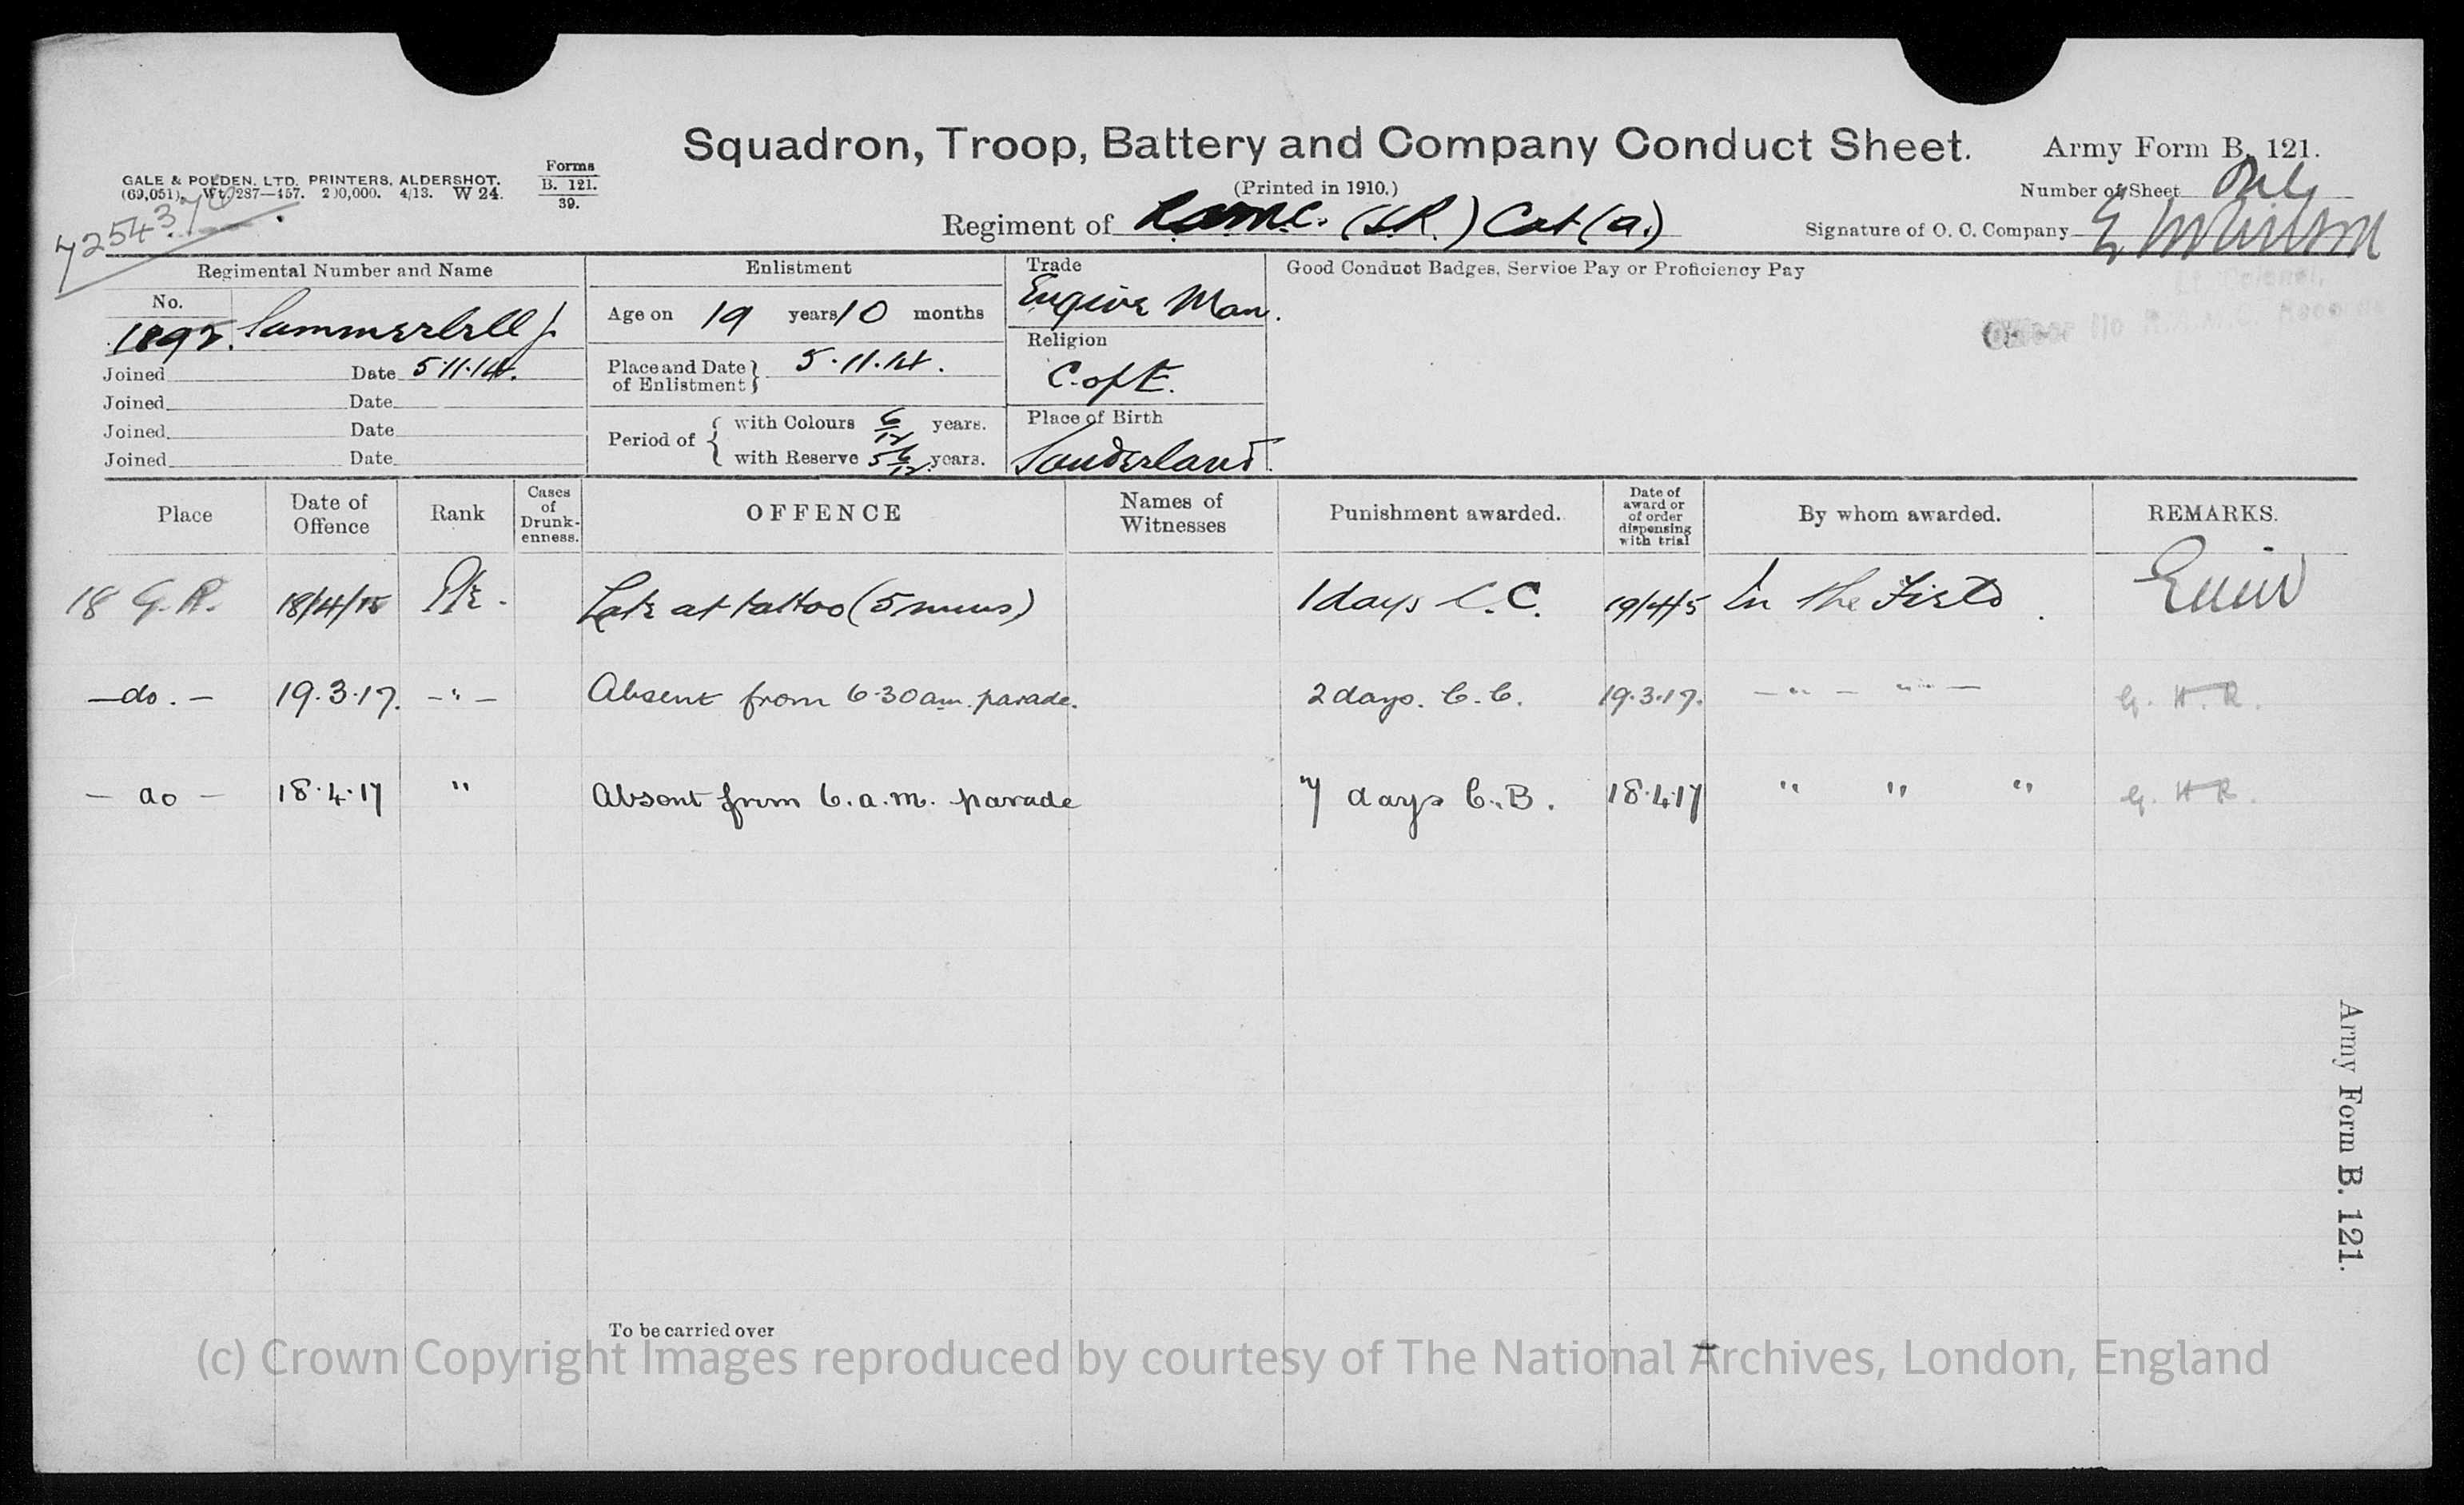 Squadron, Troop, Battery and Company Conduct Sheet.
Army Form B. 121.
GALE & POLDEN, LTD. PRINTERS, ALDERSHOT.
(69,051). Wt. 287—457. 200,000. 4/13. W 24.
Forms
B. 121.
39.
(Printed in 1910.)
Number of Sheet Only
Regiment of R.A.M.C. (S.R.) Cat (a.)
Signature of O. C. Company
Regimental Number and Name
Enlistment
Trade
Engine Man.
Good Conduct Badges, Service Pay or Proficiency Pay
No.
Summerbell J.
Age on 19 years 10 months
Religion
C. of E.
Joined Date 5.11.14.
Joined Date
Joined Date
Joined Date
Place and Date of Enlistment 5.11.14.
Period of with Colours 6/12 years.
with Reserve 5 6/12 years.
Place of Birth
Sunderland.
Lt. Colonel,
Officer i/c R.A.M.C. Records
Place
Date of Offence
Rank
Cases of Drunk-enness.
OFFENCE
Names of Witnesses
Punishment awarded.
Date of award or of order dispensing with trial
By whom awarded.
REMARKS.
18 G.H. 18/4/15 Pte. Late at tattoo (5 mins) 1 days C.C. 19/4/15 In the Field
—do.— 19.3.17. —"— Absent from 6.30 am. parade. 2 days. C.C. 19.3.17. —"— "" — G. H. R.
— do — 18.4.17 " Absent from 6.a.m. parade 7 days C.B. 18.4.17 " " " G. H R.
To be carried over
Army Form B. 121.
(c) Crown Copyright Images reproduced by courtesy of The National Archives, London, England